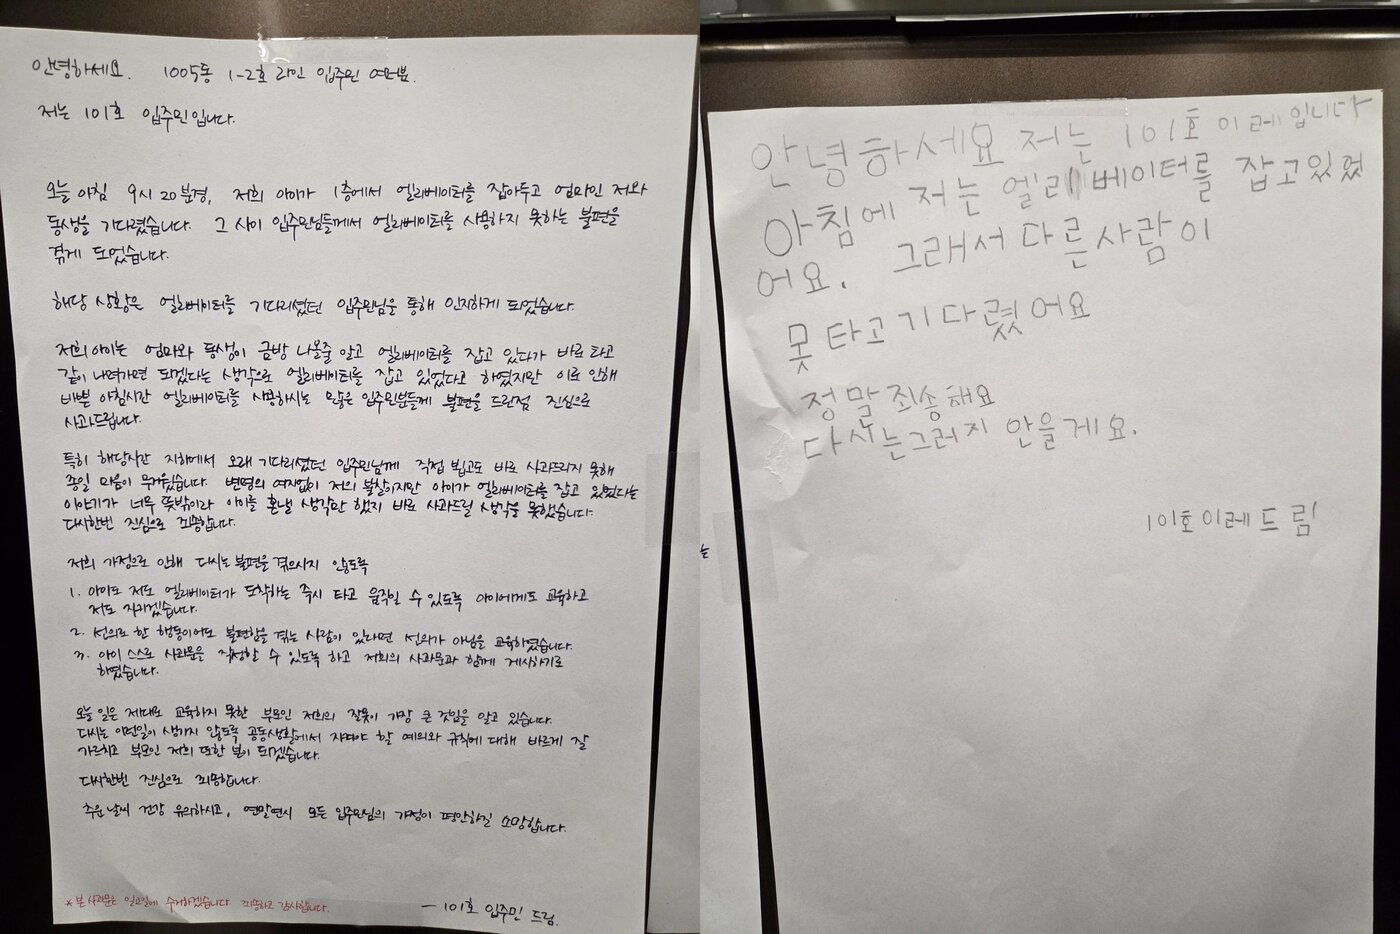 안녕하세요. 1005동 1-2호 라인 입주민 여러분.
저는 101호 입주민입니다.
오늘 아침 9시 20분경, 저희 아이가 1층에서 엘리베이터를 잡아두고 엄마인 저와
동생을 기다렸습니다. 그 사이 입주민님들께서 엘리베이터를 사용하지 못하는 불편을
겪게 되었습니다.
해당 상황은 엘리베이터를 기다리셨던 입주민님을 통해 인지하게 되었습니다.
저희 아이는 엄마와 동생이 금방 나올줄 알고 엘리베이터를 잡고 있다가 바로 타고
같이 내려가면 되겠다는 생각으로 엘리베이터를 잡고 있었다고 하였지만 이로 인해
바쁜 아침시간 엘리베이터를 사용하시는 많은 입주민분들께 불편을 드린점 진심으로
사과드립니다.
특히 해당시간 지하에서 오래 기다리셨던 입주민님께 직접 뵙고도 바로 사과드리지 못해
종일 마음이 무거웠습니다. 변명의 여지없이 저의 불찰이지만 아이가 엘리베이터를 잡고 있었다는
이야기가 너무 뜻밖이라 아이를 혼낼 생각만 했지 바로 사과드릴 생각을 못했습니다.
다시한번 진심으로 죄송합니다.
저희 가정으로 인해 다시는 불편을 겪으시지 않도록
1. 아이도 저도 엘리베이터가 도착하는 즉시 타고 움직일 수 있도록 아이에게도 교육하고
저도 지키겠습니다.
2. 선의로 한 행동이어도 불편함을 겪는 사람이 있다면 선의가 아님을 교육하였습니다.
3. 아이 스스로 사과문을 작성할 수 있도록 하고 저희의 사과문과 함께 게시하기로
하였습니다.
오늘 일은 제대로 교육하지 못한 부모인 저희의 잘못이 가장 큰 것임을 알고 있습니다.
다시는 이런일이 생기지 않도록 공동생활에서 지켜야 할 예의와 규칙에 대해 바르게 잘
가르치고 부모인 저희 또한 본이 되겠습니다.
다시한번 진심으로 죄송합니다.
추운 날씨 건강 유의하시고, 연말연시 모든 입주민님의 가정이 평안하길 소망합니다.
*본 사과문은 일요일에 수거하겠습니다. 죄송하고 감사합니다.
- 101호 입주민 드림.
안녕하세요 저는 101호 이레입니다
아침에 저는 엘리베이터를 잡고있었
어요. 그래서 다른사람이
못 타고 기다렸어요
정말 죄송해요
다시는그러지 안을게요.
101호이레드림
는